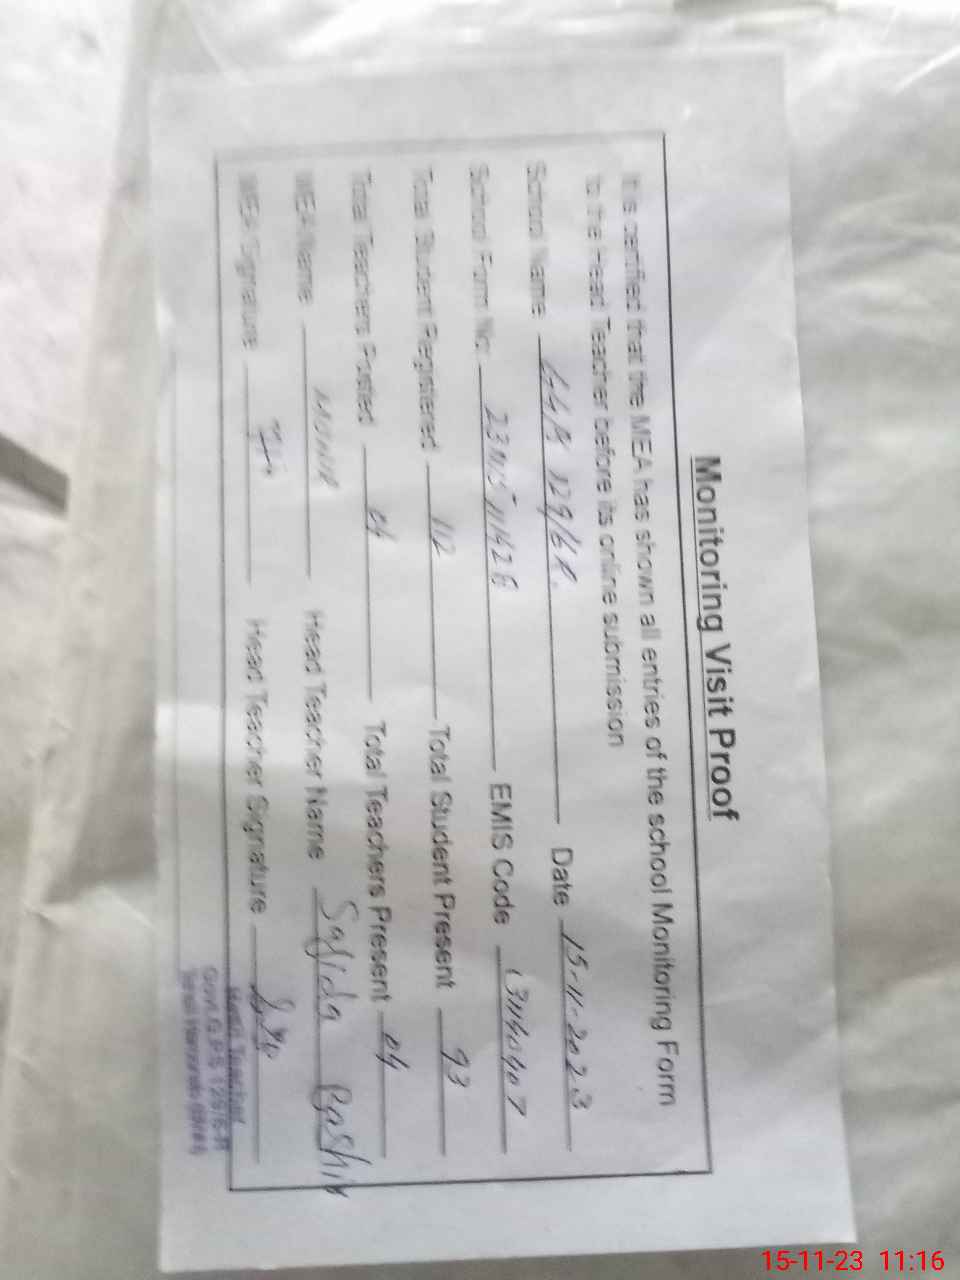 Monitoring Visit Proof
It is certified that the MEA has shown all entries of the school Monitoring Form
to the Head Teacher before its online submission
School Name 129/6R. Date 15-11-2023
School Form No. EMIS Code
Total Student Registered 112 Total Student Present 93
Total Teachers Posted 04 Total Teachers Present 04
MEA Name Head Teacher Name Sajida Bashir
MEA Signature Head Teacher Signature
Head Teacher
Govt. G.P.S 129/6-R
15-11-23 11:16